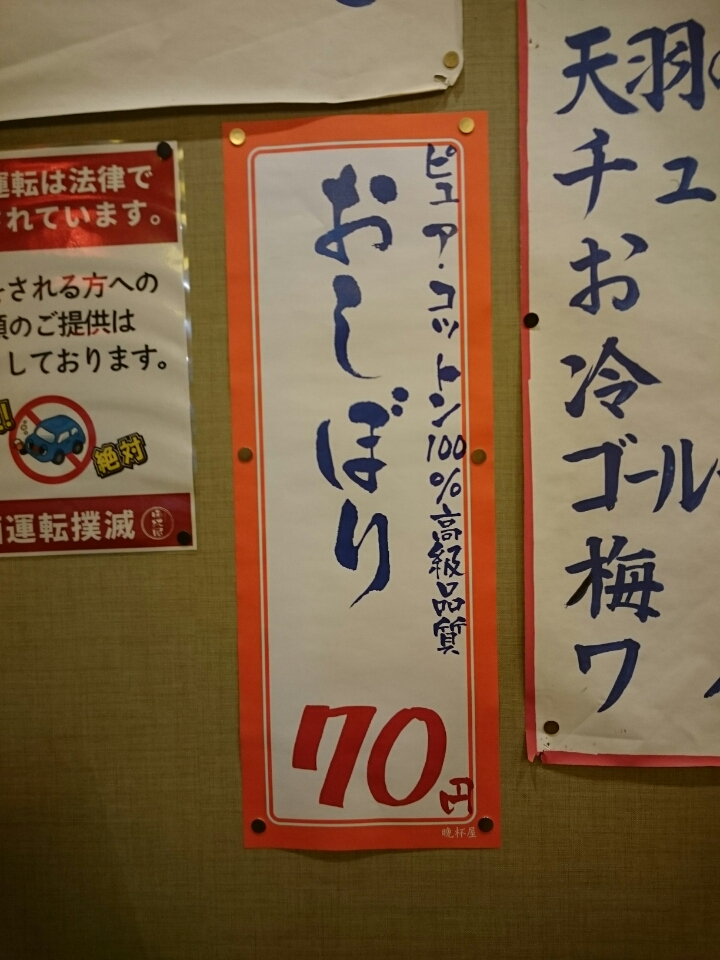 ピュア・コットン100%高級品質
おしぼり
70円
晩杯屋
転は法律で
れています。
される方への
のご提供は
しております。
絶対
運転撲滅
天羽
チュ
お
冷
ゴール
梅
ワ